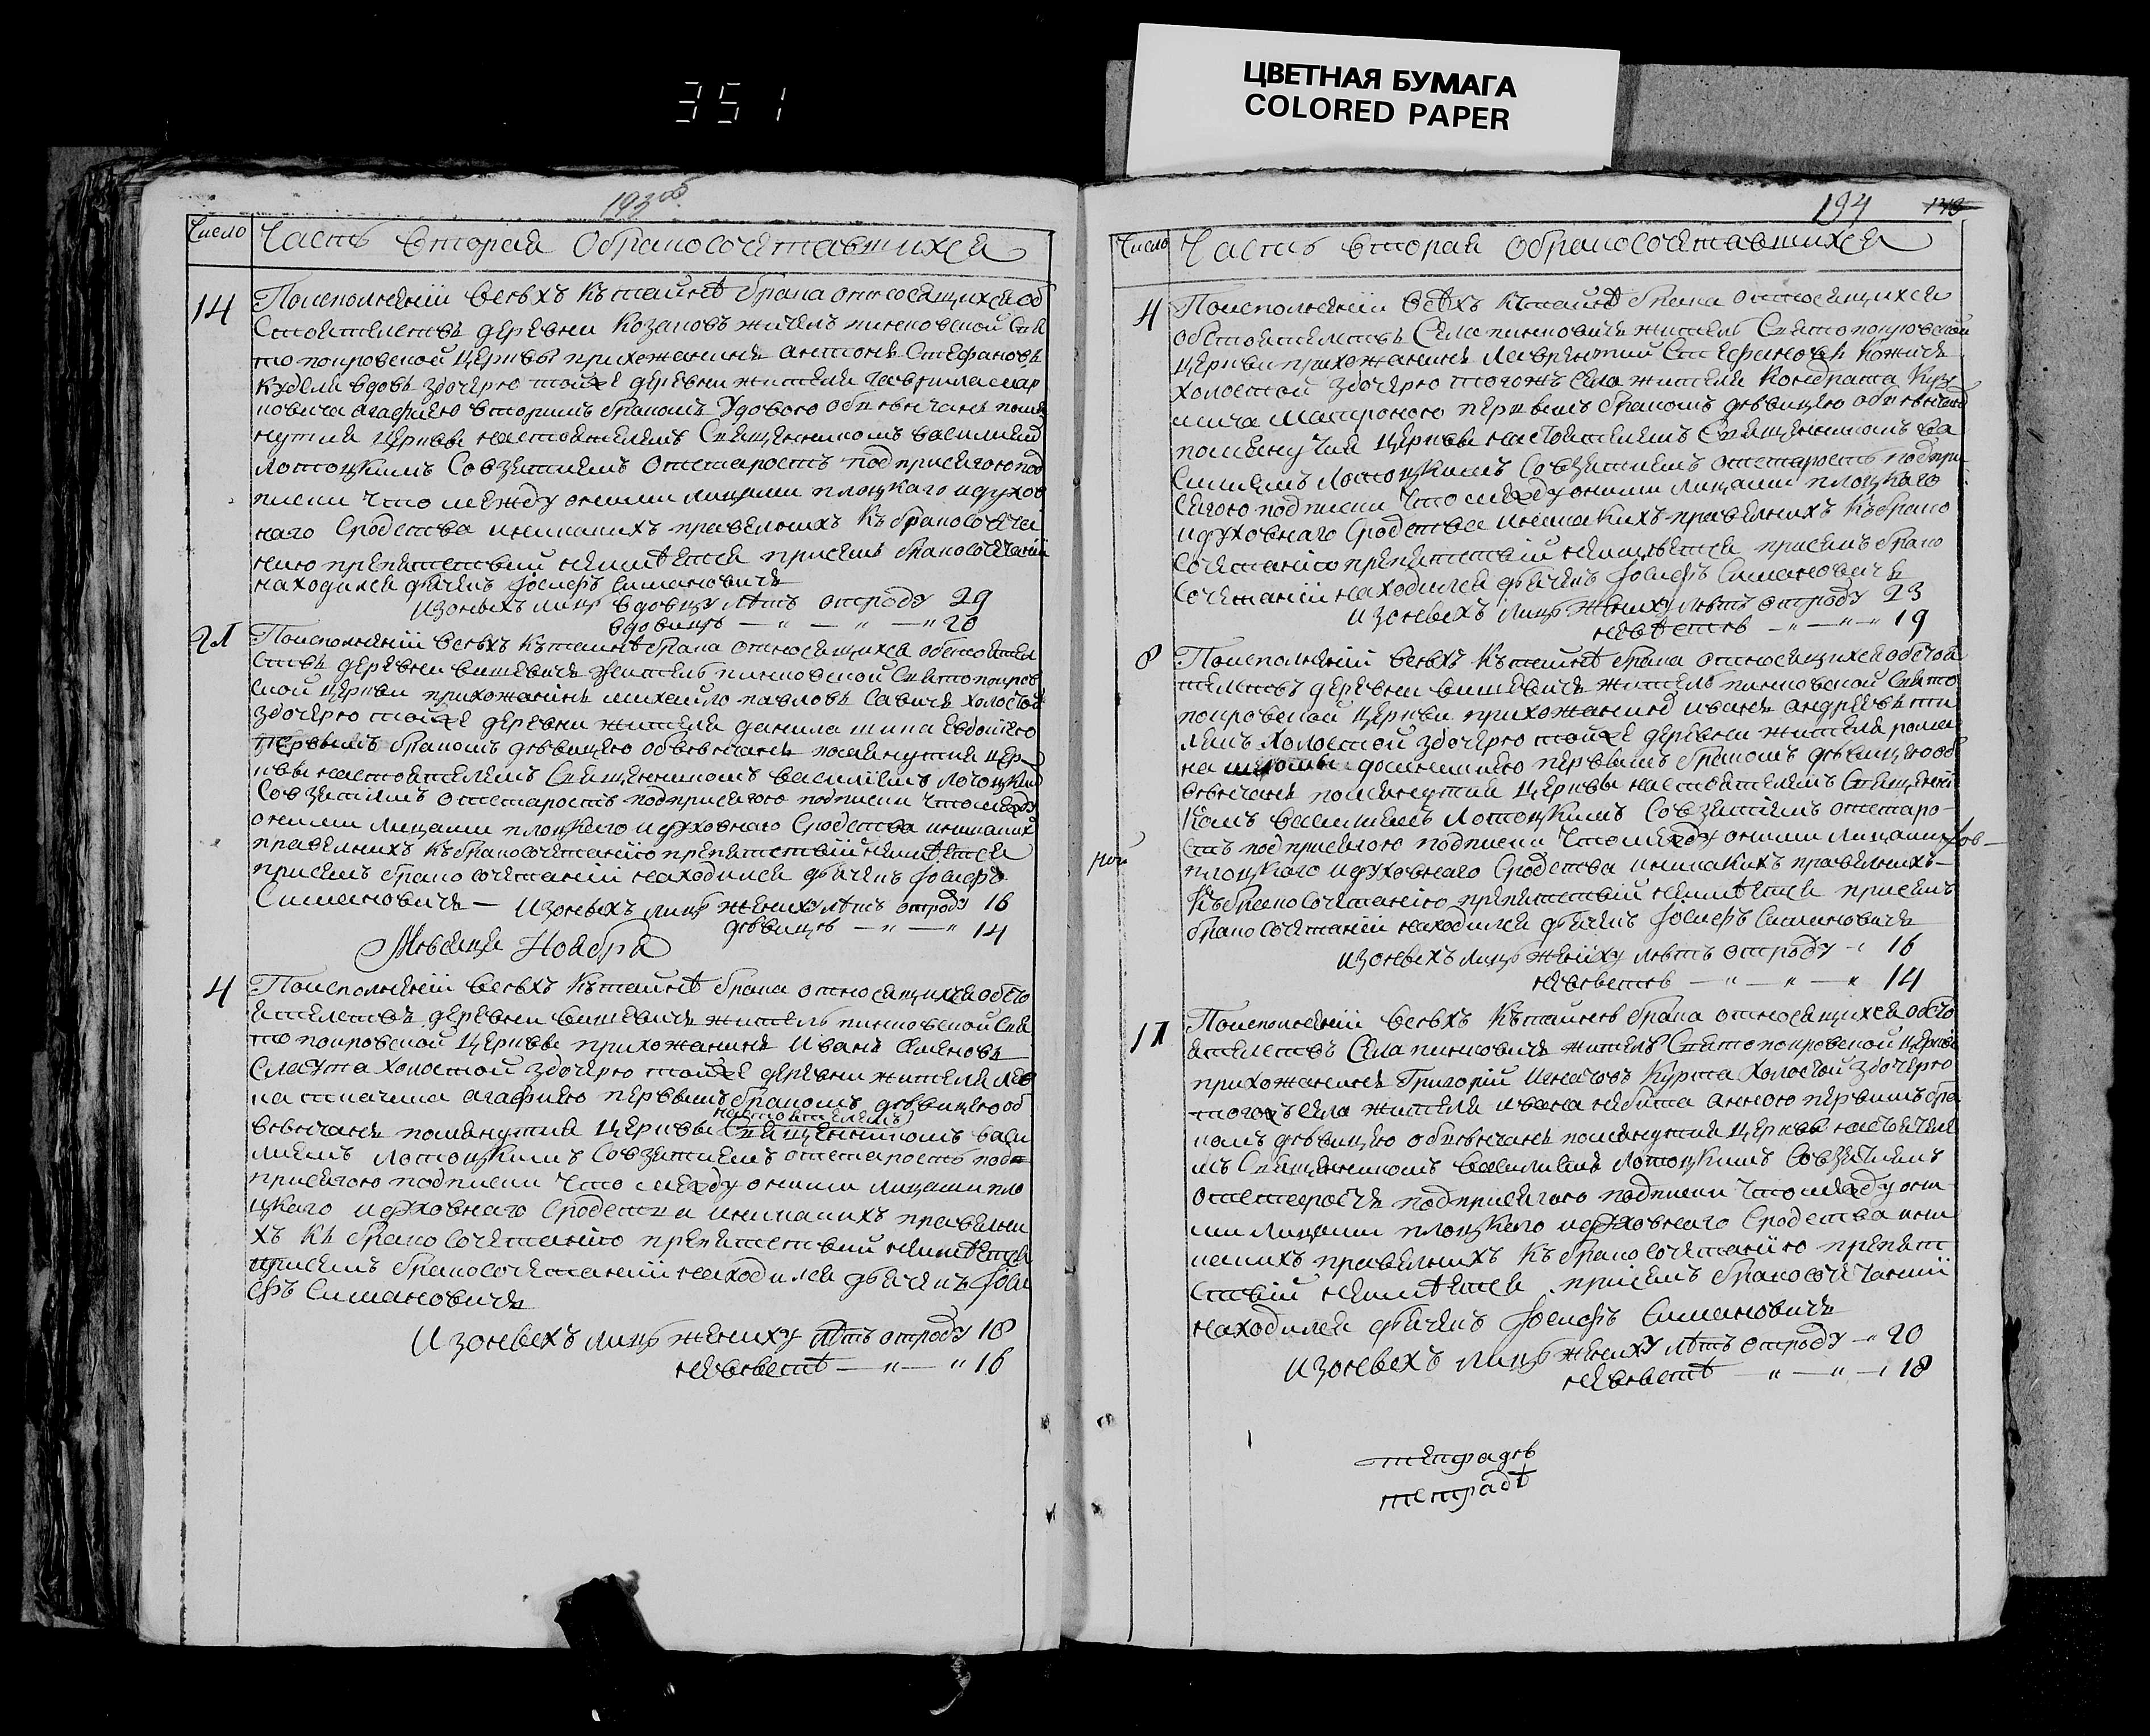 351
ЦВЕТНАЯ БУМАГА
COLORED PAPER
193 об
Число Часть вторая О бракосочетавшихся
14 Поисполненіи всехъ къ тайнѣ брака относящихся об
стоятелствъ деревни Козаковъ житель пинковской Свя
то покровской церквы прихожанинъ антонъ Стефановъ
вдовъ здочерю тойже деревни жителя гаврила мар
ковича агафиею вторимъ бракомъ Удовою обвѣнчанъ помя
нутия церквы настоятелемъ Священникомъ василием
Лотоцкимъ Совзятиемъ отстаростъ подприсягою под
писки что между оними лицами плоцкаго идухов
наго Сродства иникакихъ правилнихъ къ бракосочета
нию препятствий неимѣется присемъ бракосочетаніи
находился дьячекъ Іосифъ Симановичъ
Изонихъ лицъ вдовцу лѣтъ отроду 29
вдовицѣ — " — " — " 20
21 Поисполненіи всѣхъ къ тайнѣ брака относящихся обстоятел
ствъ деревни вишевичъ житель пинковской Святопокров
ской церкви прихожанинъ михайло павловъ Савичъ холостой
здочерю тойже деревни жителя данила Евдокиею
первымъ бракомъ девицею обвѣнчанъ помянутия цер
квы настоятелемъ Священникомъ василиемъ Лотоцким
Совзятиемъ отстаростъ подприсягою подписки что между
оними лицами плоцкаго идуховнаго Сродства иникаких
правилнихъ къ бракосочетанию препятствий неимѣется
присемъ бракосочетании находился дьячекъ Іосифъ
Симановичъ — Изонихъ лицъ жениху лѣтъ отроду 16
дѣвицѣ — " — " 14
Мѣсяца Ноября
4 Поисполненіи всѣхъ къ тайнѣ брака относящихся обсто
ятелствъ деревни вишевичъ житель пинковской Свя
то покровской церквы прихожанинъ Иванъ Семеновъ
холостой здочерю тойже деревни жителя
агафиею первымъ бракомъ дѣвицею об
настоятелемъ
вѣнчанъ помянутия церквы Священникомъ васи
лиемъ Лотоцкимъ Совзятиемъ отстаростъ под
присягою подписки что между оними лицами пло
цкаго идуховнаго Сродства иникакихъ правилни
хъ къ бракосочетанию препятствий неимѣется
присемъ бракосочетании находился дьячекъ Іоси
фъ Симановичъ
Изонихъ лицъ жениху лѣтъ отроду 18
невѣстѣ — " — " 16
194 193
Число Часть вторая О бракосочетавшихся
4 Поисполненіи всѣхъ къ тайнѣ брака относящихся
обстоятелствъ Села пинковичъ житель Святопокровской
церкви прихожанинъ Лаврентий Стефановъ
холостой здочерю тогожъ села жителя Кондрата Куз
мича Матроною первымъ бракомъ дѣвицею обвѣнчанъ
помянутия церквы настоятелемъ Священникомъ ва
силиемъ Лотоцкимъ Совзятиемъ отстаростъ подпри
сягою подписки что между оними лицами плоцкаго
идуховнаго Сродства иникакихъ правилнихъ къ брако
сочетанию препятствий неимѣется присемъ брако
сочетании находился дьячекъ Іосифъ Симановичъ
Изонихъ лицъ жениху лѣтъ отроду 23
невѣстѣ — " — " — " 19
8 Поисполненіи всѣхъ къ тайнѣ брака относящихся обстоя
телствъ деревни вишевичъ житель пинковской Свято
покровской церкви прихожанинъ иванъ андреевъ
холостой здочерю тойже деревни жителя рома
на доминикиею первымъ бракомъ дѣвицею об
вѣнчанъ помянутия церквы настоятелемъ Священни
комъ василиемъ Лотоцкимъ Совзятиемъ отстаро
стъ подприсягою подписки что между оними лицами
плоцкаго идуховнаго Сродства иникакихъ правилнихъ
къ бракосочетанию препятствий неимѣется присемъ
бракосочетании находился дьячекъ Іосифъ Симановичъ
Изонихъ лицъ жениху лѣтъ отроду — " 16
невѣстѣ — " — " — " 14
11 Поисполненіи всѣхъ къ тайнѣ брака относящихся обсто
ятелствъ Села пинковичъ житель Святопокровской церкви
прихожанинъ Григорій Игнатовъ Курта холостой здочерю
тогожъ села жителя ивана анною первимъ бра
комъ дѣвицею обвѣнчанъ помянутия церквы настоятеле
мъ Священникомъ василиемъ Лотоцкимъ Совзятиемъ
отстаростъ подприсягою подписки что между они
ми лицами плоцкаго идуховнаго Сродства ини
какихъ правилнихъ къ бракосочетанию препят
ствий неимѣется присемъ бракосочетании
находился дьячекъ Іосифъ Симановичъ
Изонихъ лицъ жениху лѣтъ отроду — " 20
невѣстѣ — " — " — " 18
тетрадь
тетрадѣ